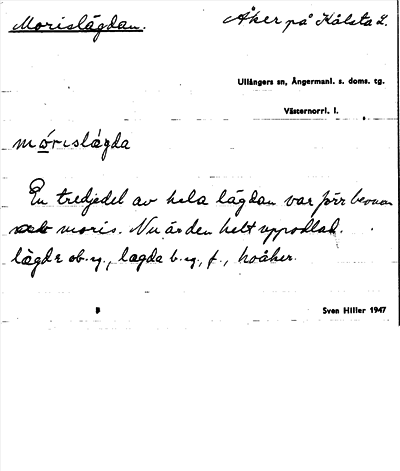 Morislägdan. Åker på Kålsta L.
Ullångers sn, Ångermanl. s. doms. tg.
Västernorrl. l.
mo̲rislägda
En tredjedel av hela lägdan var förr bevuxen
med moris. Nu är den helt uppodlad.
lägde ob.g., lagda b.g., f., hoåker.
B Sven Hiller 1947